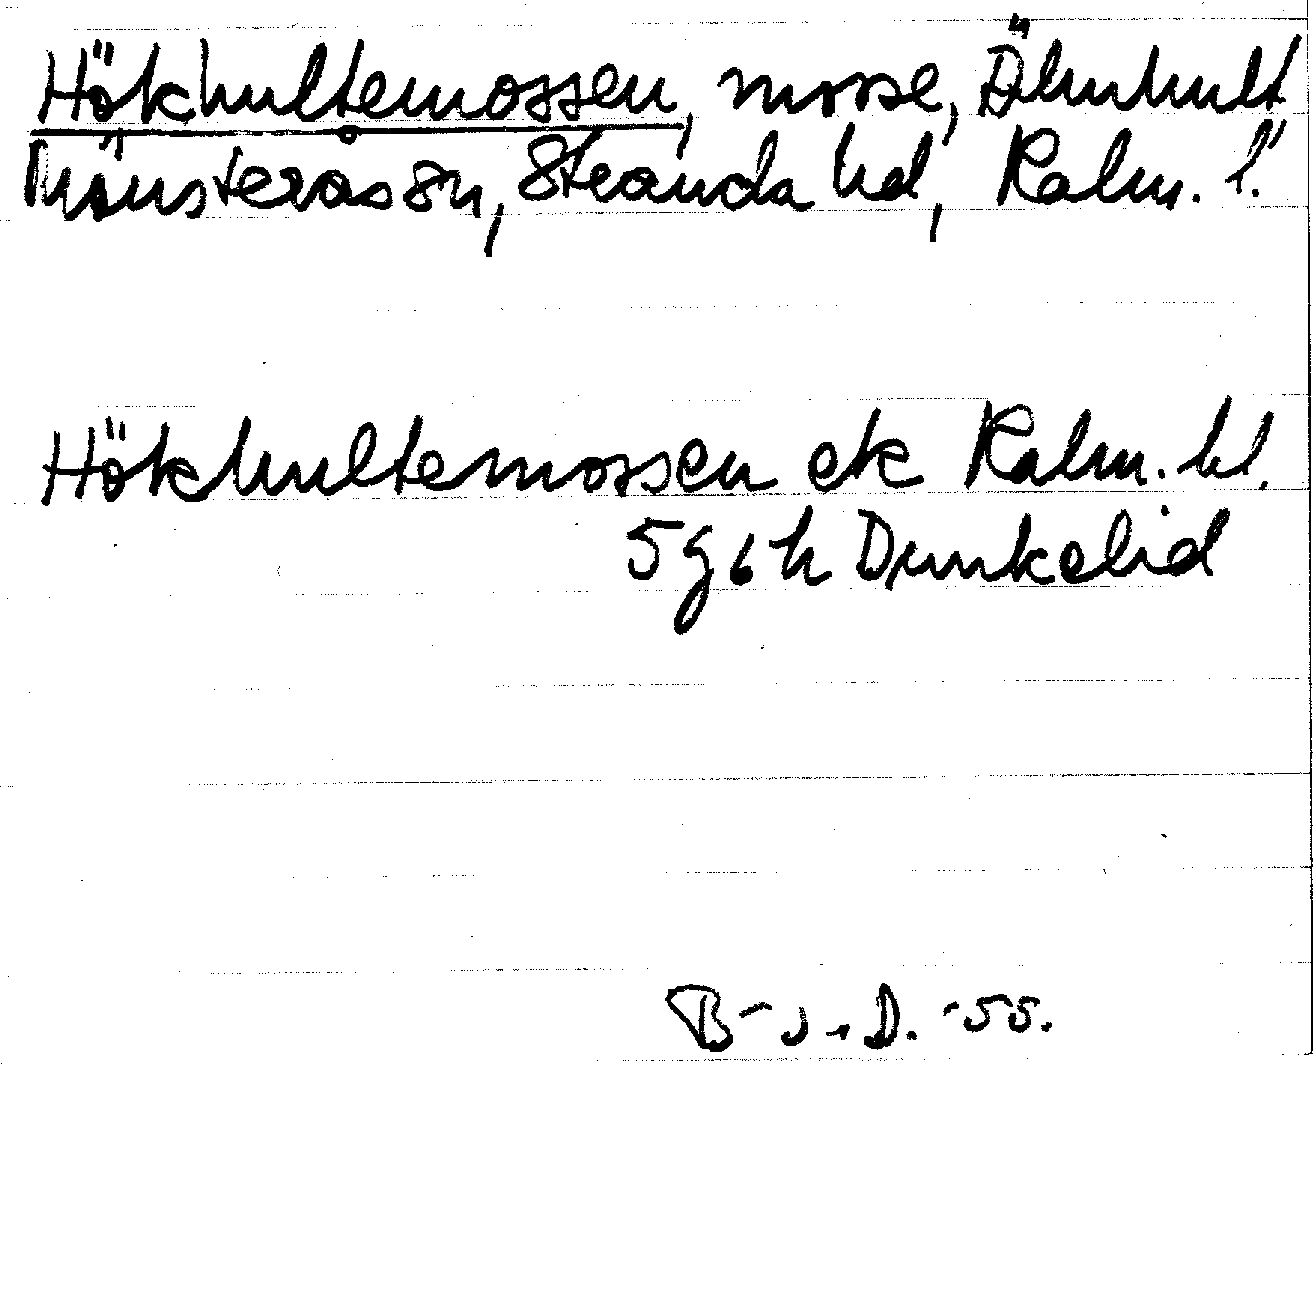 Hökhultemossen, mosse, Älmhult
Mönsterås sn, Stranda hd, Kalm. l.
Hökhultemossen ek Kalm. bl.
5g6h Dunkelid
-55.